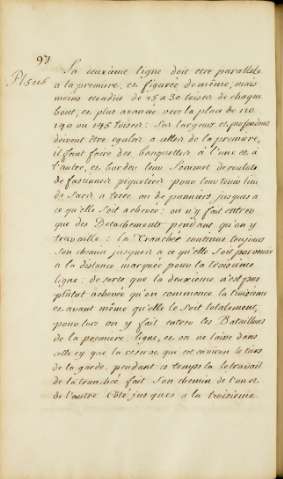 97
La deuxième ligne doit etre parallele
a la premiere, et figurée de même, mais
moins etendue de 25 a 30 toises de chaque
bout, et plus avancée vers la place de 120
140 ou 145 toises: Sa largeur et profondeur
doivent être egales a celles de la premiere,
il faut faire des banquettes à l'une et à
l'autre, et border leur Sommet de rouleaux
de fascines piquetées pour leur tenir lieu
de Sacs a terre ou de panniers jusques a
ce qu'elle Soit achevée: on n'y fait entrer
que des Detachements pendant qu'on y
travaille; la Tranchée continue toujours
Son chemin jusques a ce qu'elle Soit parvenue
a la distance marquée pour la troisieme
ligne; de sorte que la deuxieme n'est pas
plutôt achevée qu'on commence la troisieme
et avant même qu'elle le Soit totalement,
pour lors on y fait entrer les Bataillons
de la premiere ligne, et on ne laisse dans
celle cy que la reserve qui est environ le tiers
de la garde, pendant ce temps la le travail
de la tranchée fait Son chemin de l'un et
de l'autre Côté jusques a la troisieme